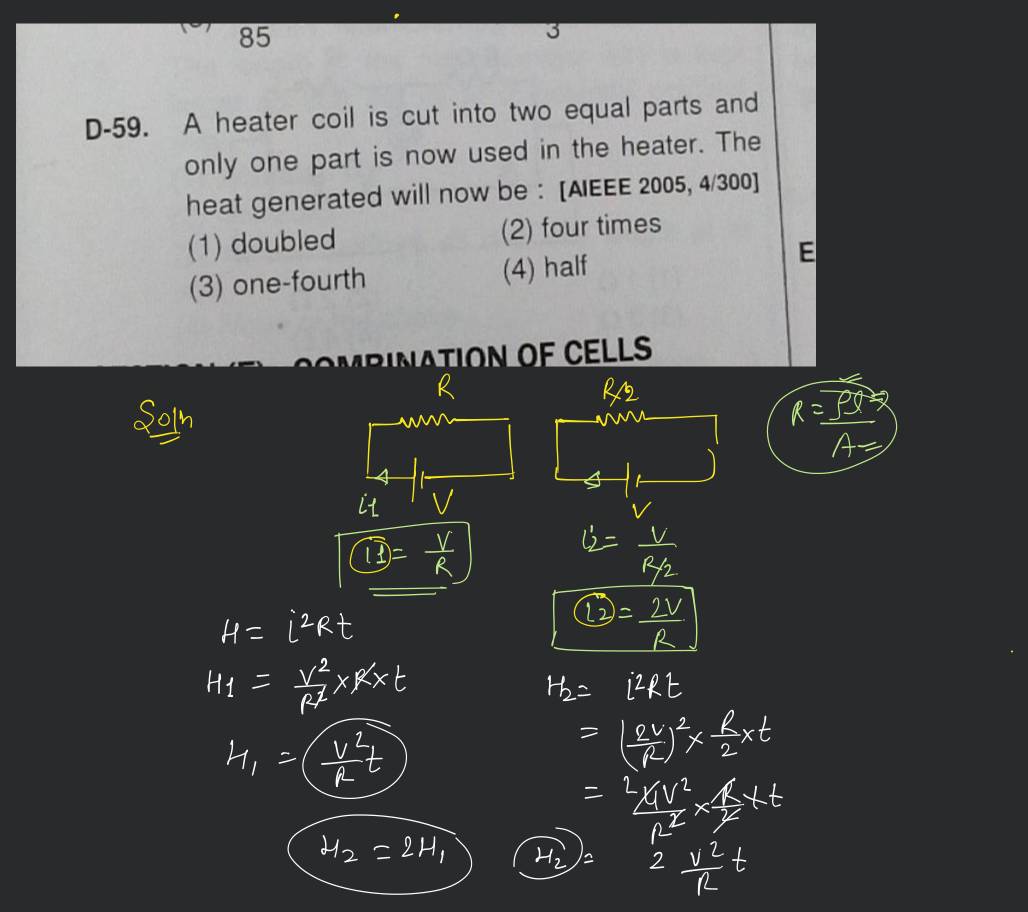 85
3
D-59. A heater coil is cut into two equal parts and
only one part is now used in the heater. The
heat generated will now be : [AIEEE 2005, 4/300]
(1) doubled (2) four times
(3) one-fourth (4) half
E
COMBINATION OF CELLS
Soln
R
R/2
R = ρl / A
i1 V
V
i1 = V/R
i2 = V / R/2
i2 = 2V/R
H = i²Rt
H1 = V²/R² × R × t
H₁ = V²/R t
H2 = i²Rt
= (2V/R)² × R/2 × t
= 2 4V²/R² × R/2 × t
H2 = 2 V²/R t
H2 = 2H₁